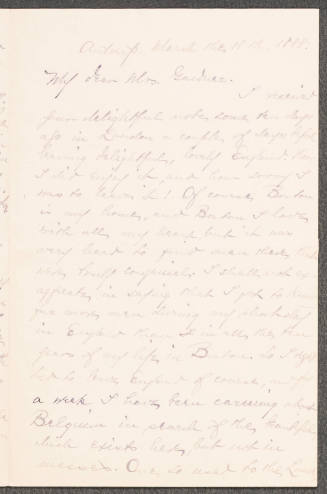 Antwerp, March the 18th, 1888.
My dear Mrs. Gardner.
I received
your delightful note some ten days
ago in London a couple of days before
leaving delightful, lovely England. How
I did enjoy it, and how sorry I
was to leave it! Of course Boston
is my home, and Boston I love
with all my heart but it was
very hard to find men there that
were congenial. I shall not
in saying that I got to know
more men during my
in England than I in all the ten
years of my life in Boston. So I
to leave England of course,
a week I have been careering about
Belgium in search of the beautiful
which exists here, but not in
. One is used to the